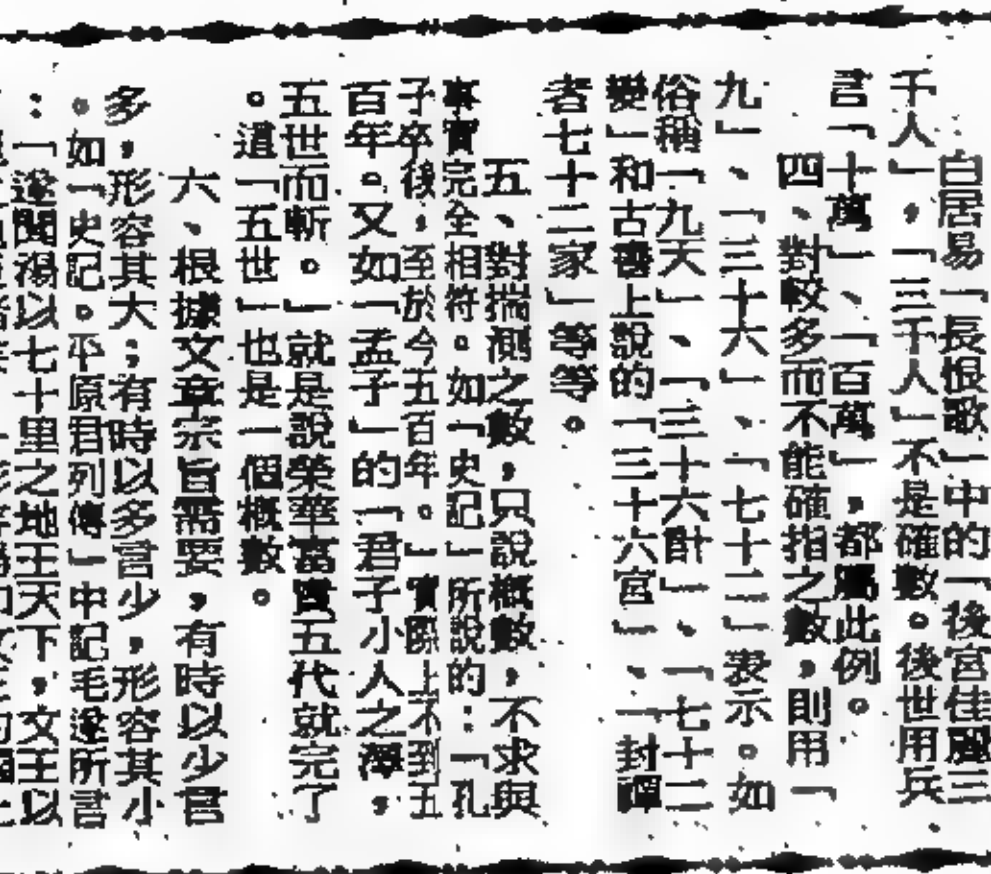 白居易「長恨歌」中的「後宮佳麗三
千人」，「三千人」不是確數。後世用兵
言「十萬」、「百萬」，都屬此例。
四、對較多而不能確指之數，則用「
九」、「三十六」、「七十二」表示。如
俗稱「九天」、「三十六計」、「七十二
變」和古書上說的「三十六宮」、「封禪
者七十二家」等等。
五、對揣測之數，只說概數，不求與
事實完全相符。如「史記」所說的：「孔
子卒後，至於今五百年。」實際上不到五
百年。又如「孟子」的「君子小人之澤，
五世而斬。」就是說榮華富貴五代就完了
。這「五世」也是一個概數。
六、根據文章宗旨需要，有時以少言
多，形容其大；有時以多言少，形容其小
。如「史記。平原君列傳」中記毛遂所言
：「遂聞湯以七十里之地王天下，文王以